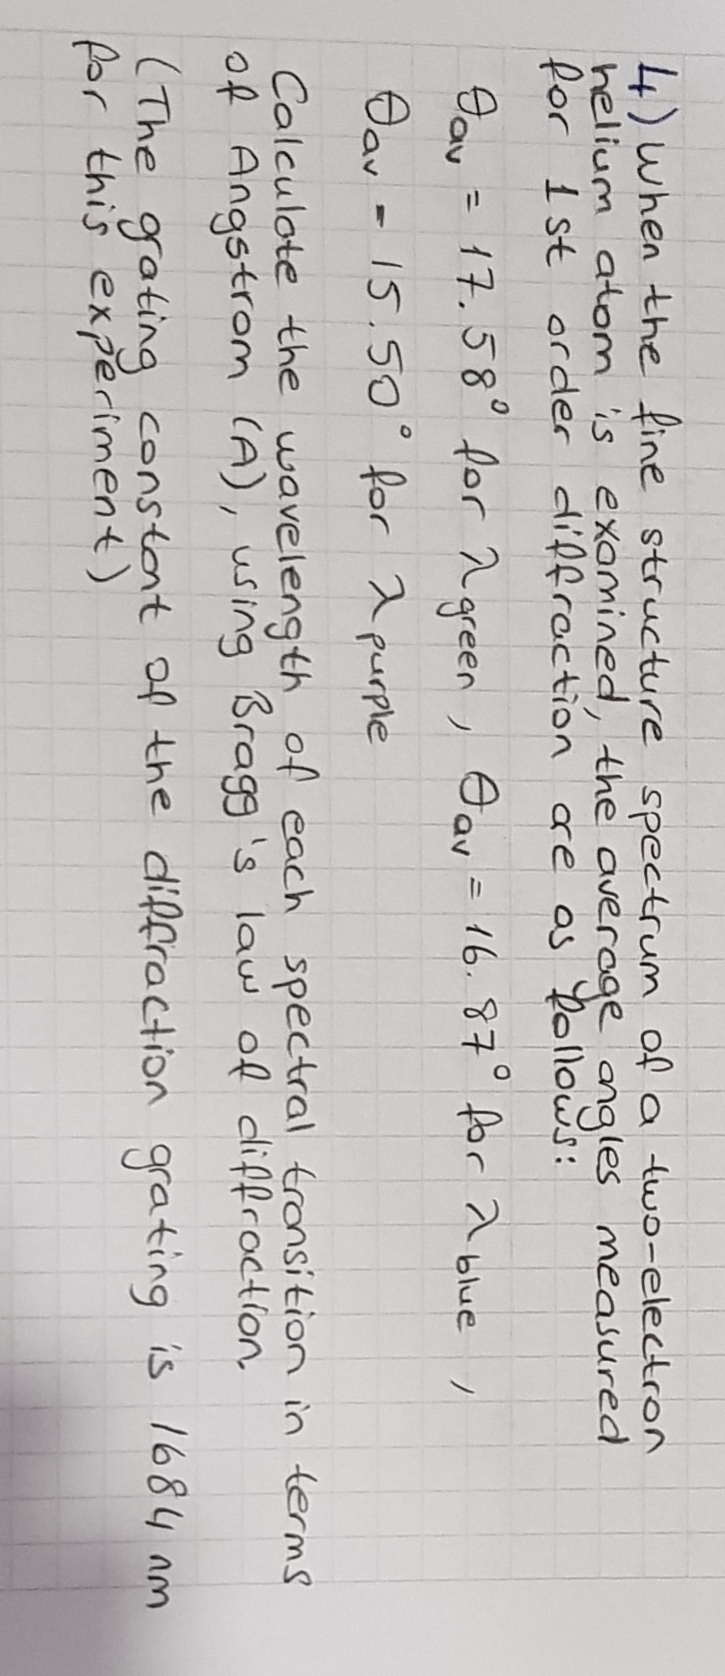 4) When the fine structure spectrum of a two-electron
helium atom is examined, the average angles measured
for 1st order diffraction are as follows:
θav = 17.58° for λgreen, θav = 16.87° for λblue,
θav = 15.50° for λpurple
Calculate the wavelength of each spectral transition in terms
of Angstrom (A), using Bragg's law of diffraction.
(The grating constant of the diffraction grating is 1684 nm
for this experiment)